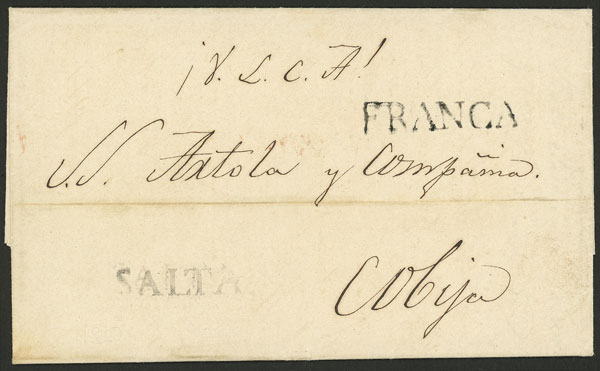 ¡V. L. C. A!
FRANCA
S.S. Artola y Compañia.
SALTA
Cobija